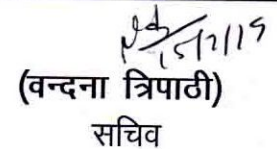 15/2/19
(वन्दना त्रिपाठी)
सचिव